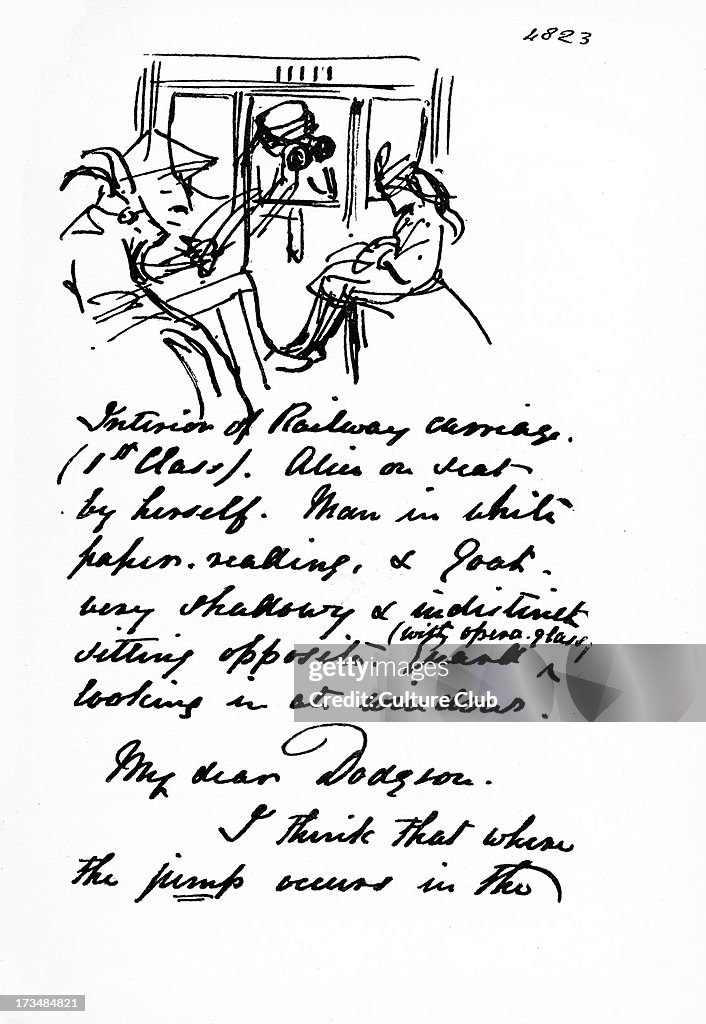 4823
Interior of Railway carriage.
(1st Class). Alice on seat
by herself. Man in white
paper. reading, & Goat.
very shadowy & indistinct
sitting opposite. Guard (with opera-glass)
looking in at window.
My dear Dodgson.
I think that when
the jump occurs in the
gettyimages
Culture Club
173484821